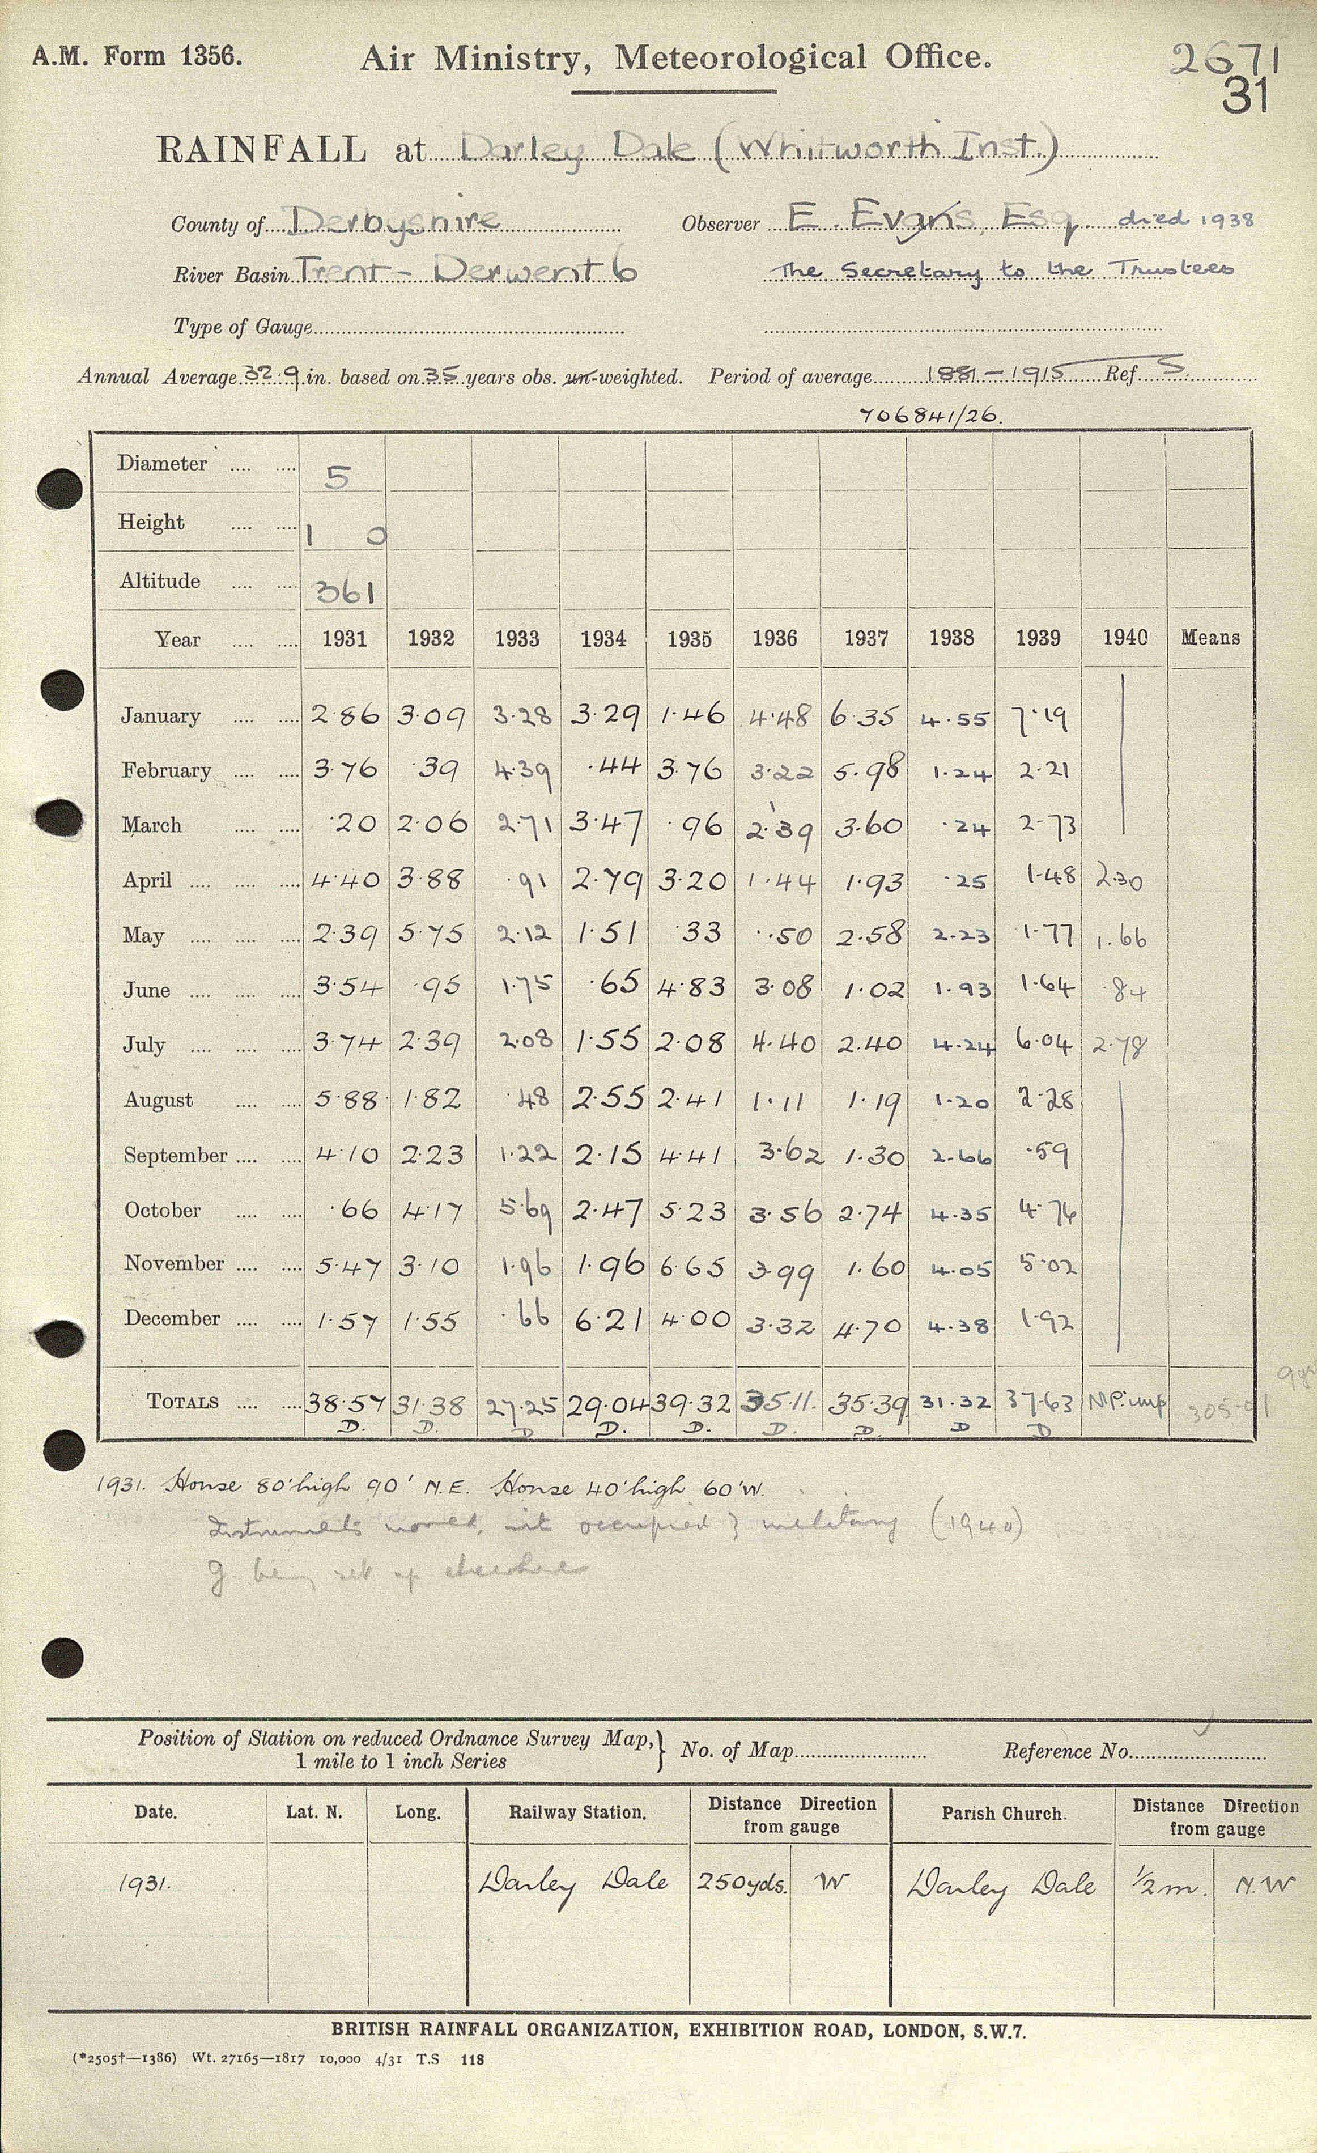 A.M. Form 1356. Air Ministry, Meteorological Office. 2671
31
RAINFALL at Darley Dale (Whitworth Inst.)
County of Derbyshire Observer E. Evans, Esq. died 1938
River Basin Trent - Derwent 6 The Secretary to the Trustees
Type of Gauge
Annual Average 32.9 in. based on 35 years obs. un-weighted. Period of average 1881-1915 Ref. S
706841/26.
Diameter 5
Height 1 0
Altitude 361
Year 1931 1932 1933 1934 1935 1936 1937 1938 1939 1940 Means
January 2.86 3.09 3.28 3.29 1.46 4.48 6.35 4.55 7.19
February 3.76 .39 4.39 .44 3.76 3.22 5.98 1.24 2.21
March .20 2.06 2.71 3.47 .96 2.39 3.60 .24 2.73
April 4.40 3.88 .91 2.79 3.20 1.44 1.93 .25 1.48 2.30
May 2.39 5.75 2.12 1.51 .33 .50 2.58 2.23 1.77 1.66
June 3.54 .95 1.75 .65 4.83 3.08 1.02 1.93 1.64 .84
July 3.74 2.39 2.08 1.55 2.08 4.40 2.40 4.24 6.04 2.78
August 5.88 1.82 .48 2.55 2.41 1.11 1.19 1.20 2.28
September 4.10 2.23 1.22 2.15 4.41 3.62 1.30 2.66 .59
October .66 4.17 5.69 2.47 5.23 3.56 2.74 4.35 4.76
November 5.47 3.10 1.96 1.96 6.65 3.99 1.60 4.05 5.02
December 1.57 1.55 .66 6.21 4.00 3.32 4.70 4.38 1.92
TOTALS 38.57 31.38 27.25 29.04 39.32 35.11 35.39 31.32 37.63 305.01
D. D. D D. D. D. D. D D
1931. House 80' high 90' N.E. House 40' high 60' W.
Instruments moved, occupied military (1940)
g being set up elsewhere
Position of Station on reduced Ordnance Survey Map, } No. of Map Reference No.
1 mile to 1 inch Series
Date. Lat. N. Long. Railway Station. Distance Direction from gauge Parish Church. Distance Direction from gauge
1931. Darley Dale 250yds. W Darley Dale 1/2 m. N.W
BRITISH RAINFALL ORGANIZATION, EXHIBITION ROAD, LONDON, S.W.7.
(*2505†—1386) Wt. 27165—1817 10,000 4/31 T.S 118